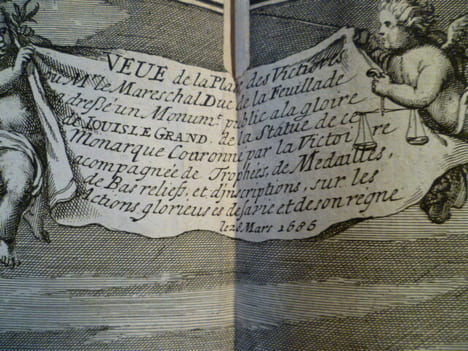 VEUE de la Place des Victoires
ou Mr. le Mareschal Duc de la Feuillade
a dressé un Monumt. public a la gloire
de LOUIS LE GRAND. de la Statüe de ce
Monarque Couronné par la Victoire
acompagnée de Trophées, de Medailles,
de Bas reliefs, et d'jnscriptions, sur les
actions glorieuses de sa vie et de son regne
le 28 Mars 1686